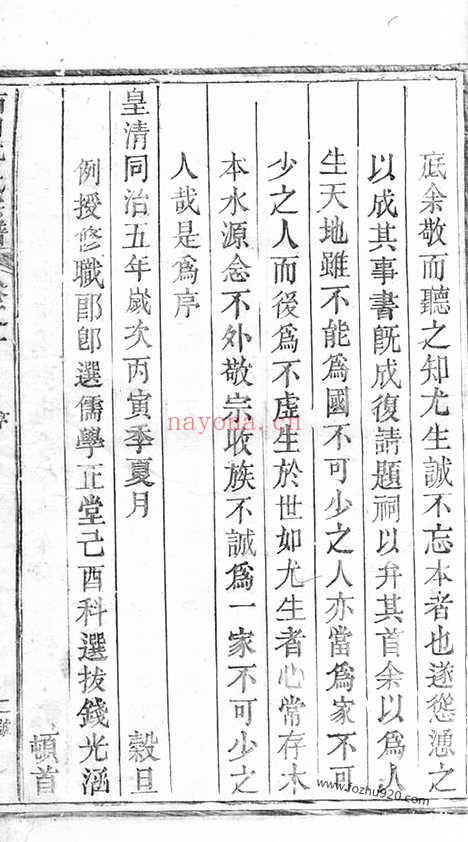 底余敬而聽之知尤生誠不忘本者也遂慫慂之
以成其事書旣成復請題祠以弁其首余以爲人
生天地雖不能爲國不可少之人亦當爲家不可
少之人而後爲不虛生於世如尤生者心常存木
本水源念不外敬宗收族不誠爲一家不可少之
人哉是爲序
皇清同治五年歲次丙寅季夏月 榖旦
例授修職郎卽選儒學正堂己酉科選拔錢光涵
頓首
序
nayona.cn
www.fozhu920.com